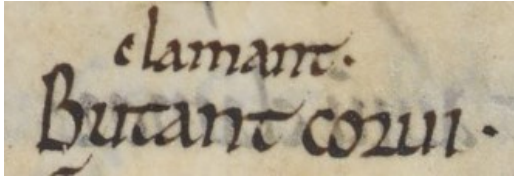 clamant·
Butant corui·